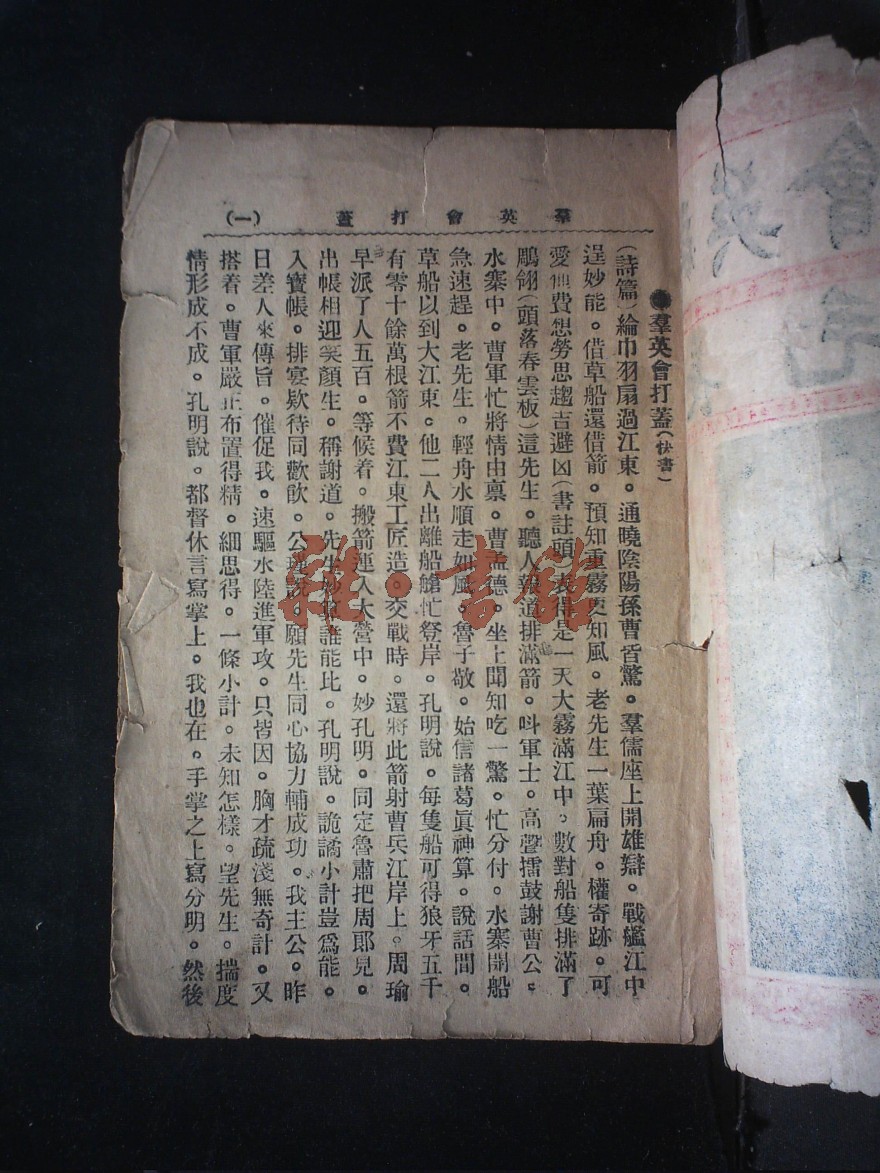 羣英會打蓋 (一)
羣英會打蓋(快書)
(詩篇)綸巾羽扇過江東。通曉陰陽孫曹皆驚。羣儒座上開雄辯。戰艦江中
逞妙能。借草船還借箭。預知重霧更知風。老先生一葉扁舟。權寄跡。可
愛他費想勞思趨吉避凶(書註頭)表得是一天大霧滿江中。數對船隻排滿了
鵰翎(頭落春雲板)這先生。聽人報道排滿箭。叫軍士。高聲擂鼓謝曹公。
水寨中。曹軍忙將情由禀。曹孟德。坐上聞知吃一驚。忙分付。水寨開船
急速趕。老先生。輕舟水順走如風。魯子敬。始信諸葛眞神算。說話間。
草船以到大江東。他二人出離船艙忙登岸。孔明說。每隻船可得狼牙五千
有零十餘萬根箭不費江東工匠造。交戰時。還將此箭射曹兵江岸上。周瑜
早派了人五百。等候着。搬箭運入大營中。妙孔明。同定魯肅把周郎見。
出帳相迎笑顏生。稱謝道。先生妙算誰能比。孔明說。詭譎小計豈爲能。
入寶帳。排宴欵待同歡飲。公瑾說。願先生同心協力輔成功。我主公。昨
日差人來傳旨。催促我。速驅水陸進軍攻。只皆因。胸才疏淺無奇計。又
搭着。曹軍嚴正布置得精。細思得。一條小計。未知怎樣。望先生。揣度
情形成不成。孔明說。都督休言寫掌上。我也在。手掌之上寫分明。然後
雜·書館
會
英